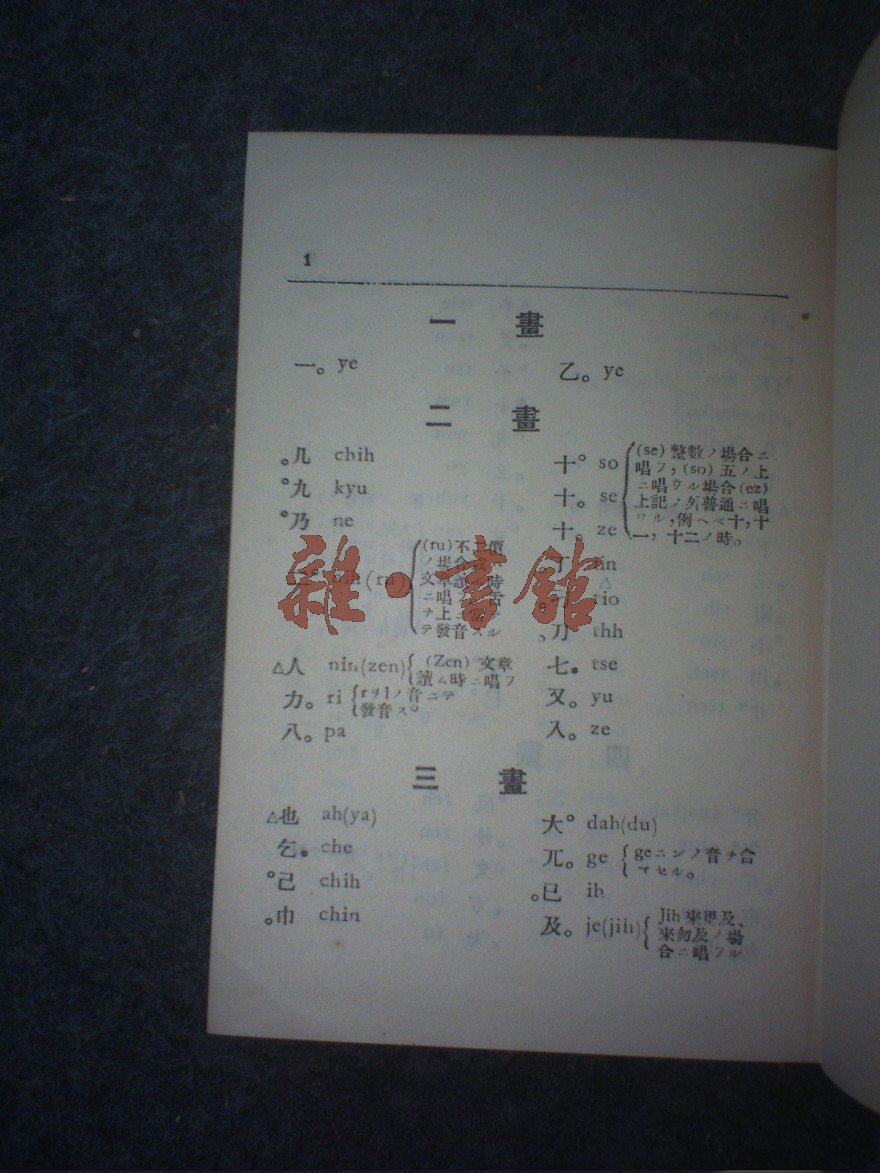 1
一 畫
一。 ye
乙。 ye
二 畫
。几 chih
°九 kyu
°乃 ne
(ru)
(ru)不二價
文章讀 時
ニ唱
テ發音スル
△人 nin(zen)
(Zen) 文章
讀ム時ニ唱フ
力。 ri
rヲlノ音ニテ
發音ス。
八。 pa
十° so
十。 se
十。 ze
(se) 整數ノ場合ニ
唱フ, (so) 五ノ上
ニ唱ウル場合(ez)
上記ノ外普通ニ唱
ワル, 例ヘバ十, 十
一, 十二ノ時。
丁 tin
tio
刀 thh
七• tse
又。 yu
入。 ze
三 畫
△也 ah(ya)
乞• che
°己 chih
。巾 chin
大° dah(du)
兀。 ge
geニンノ音ヲ合
マセル。
。已 ih
及。 je(jih)
Jih 來得及、
來勿及ノ場
合ニ唱フル
雜•書館